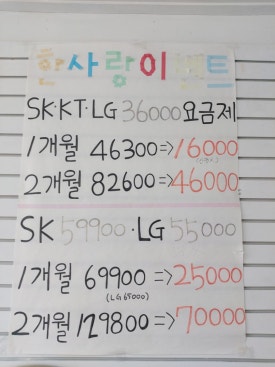 한사랑이벤트
SK·KT·LG 36000요금제
1개월 46300⇒16000
2개월 82600⇒46000
SK 59900·LG 55000
1개월 69900⇒25000
(LG 65000)
2개월 129800⇒70000